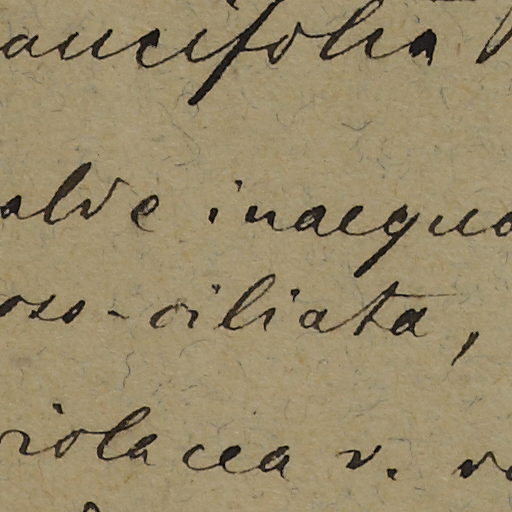 aucifolia
alde inaequa
oso-ciliata,
violacea v.